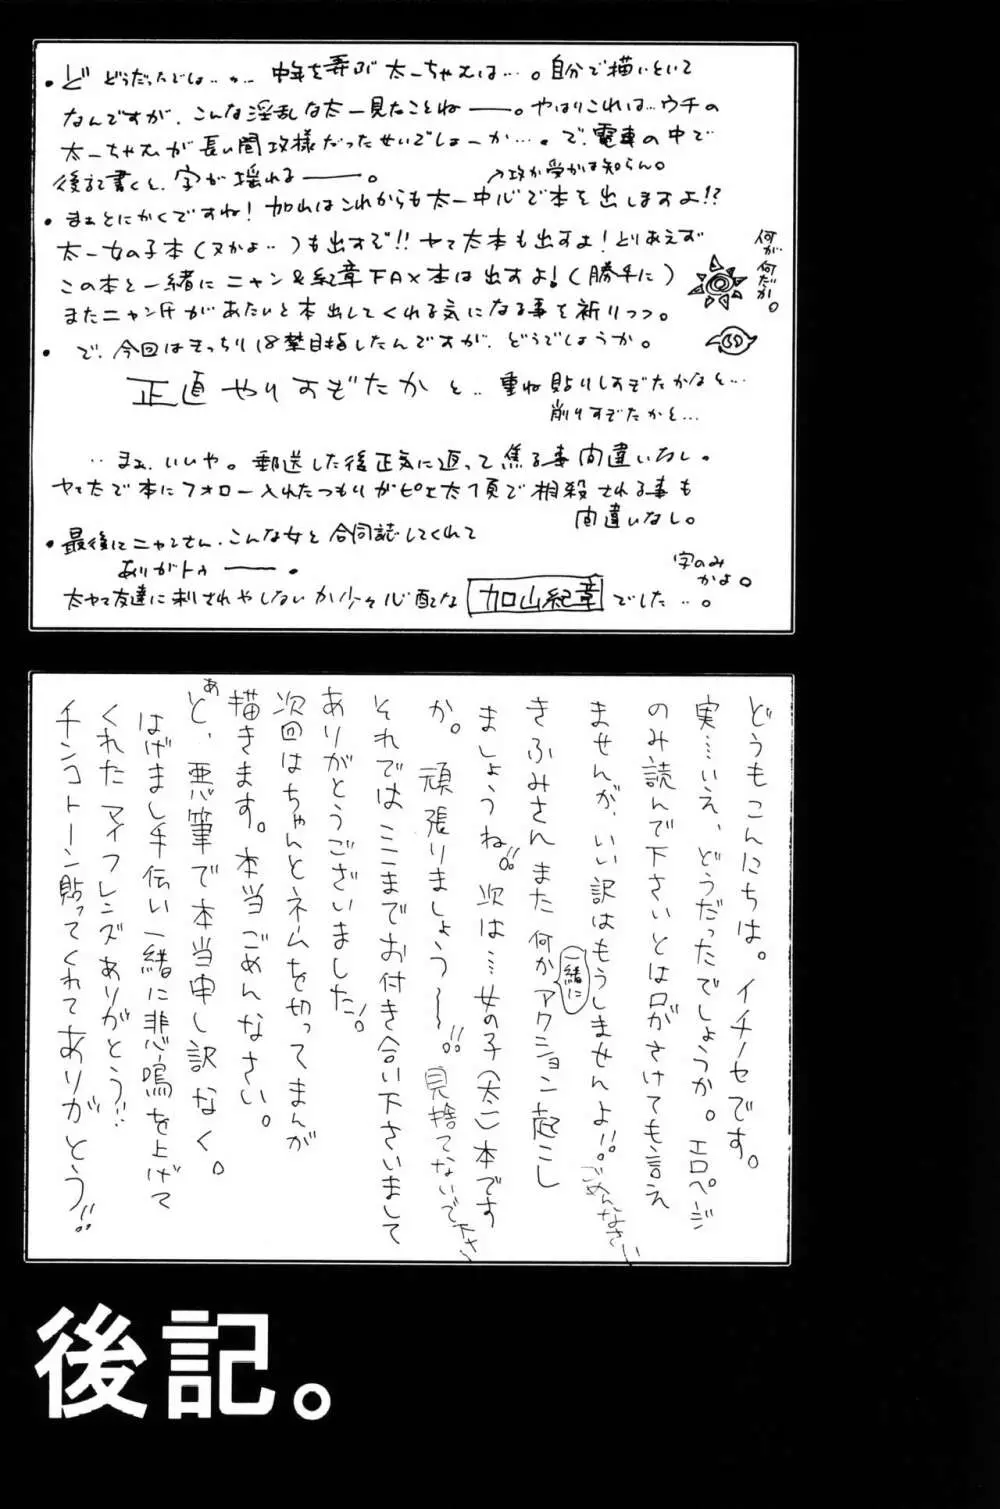 ・ど どうだったでしょ…… 中年を弄ぶ太一ちゃんは…。自分で描いといて
なんですが、こんな淫乱な太一見たことねーー。やはりこれは…ウチの
太一ちゃんが長い間攻様だったせいでしょーか…。で、電車の中で
後記書くと、字が揺れるーー。
↗攻か受かは知らん。
・まぁとにかくですね！加山はこれからも太一中心で本を出しますよ!?
太一女の子本（ヌかよ‥）も出すぞ!!ヤマ太本も出すよ！とりあえず
この本と一緒にニャン&紀章FAX本は出すよ！（勝手に）
またニャン氏があたいと本出してくれる気になる事を祈りつつ。
何が何だか。
・で、今回はきっちり18禁目指したんですが、どうでしょうか。
正直やりすぎたかと‥重ね貼りしすぎたかなと…
削りすぎたかと…
‥まぁ、いいや。郵送した後正気に返って焦る事間違いなし。
ヤマ太で本にフォロー入れたつもりがピエ太1頁で相殺される事も
間違いなし。
・最後にニャンさん、こんな女と合同誌してくれて
ありがトゥーー。
太ヤマ友達に刺されやしないか少々心配な 加山紀章 でした‥。
字のみかよ。
どうもこんにちは。イチノセです。
実…いえ、どうだったでしょうか。エロページ
のみ読んで下さいとは口がさけても言え
ませんが、いい訳はもうしませんよ!!。ごめんなさい
きふみさんまた何か一緒にアクション起こし
ましょうね!!。次は…女の子（太一）本です
か。頑張りましょう〜〜!!。見捨てないで下さい
それではここまでお付き合い下さいまして
ありがとうございました!。
次回はちゃんとネームを切ってまんが
描きます。本当ごめんなさい。
あと、悪筆で本当申し訳なく。
はげまし手伝い一緒に悲鳴を上げて
くれたマイフレンズありがとう!!
チンコトーン貼ってくれてありがとう!!
後記。